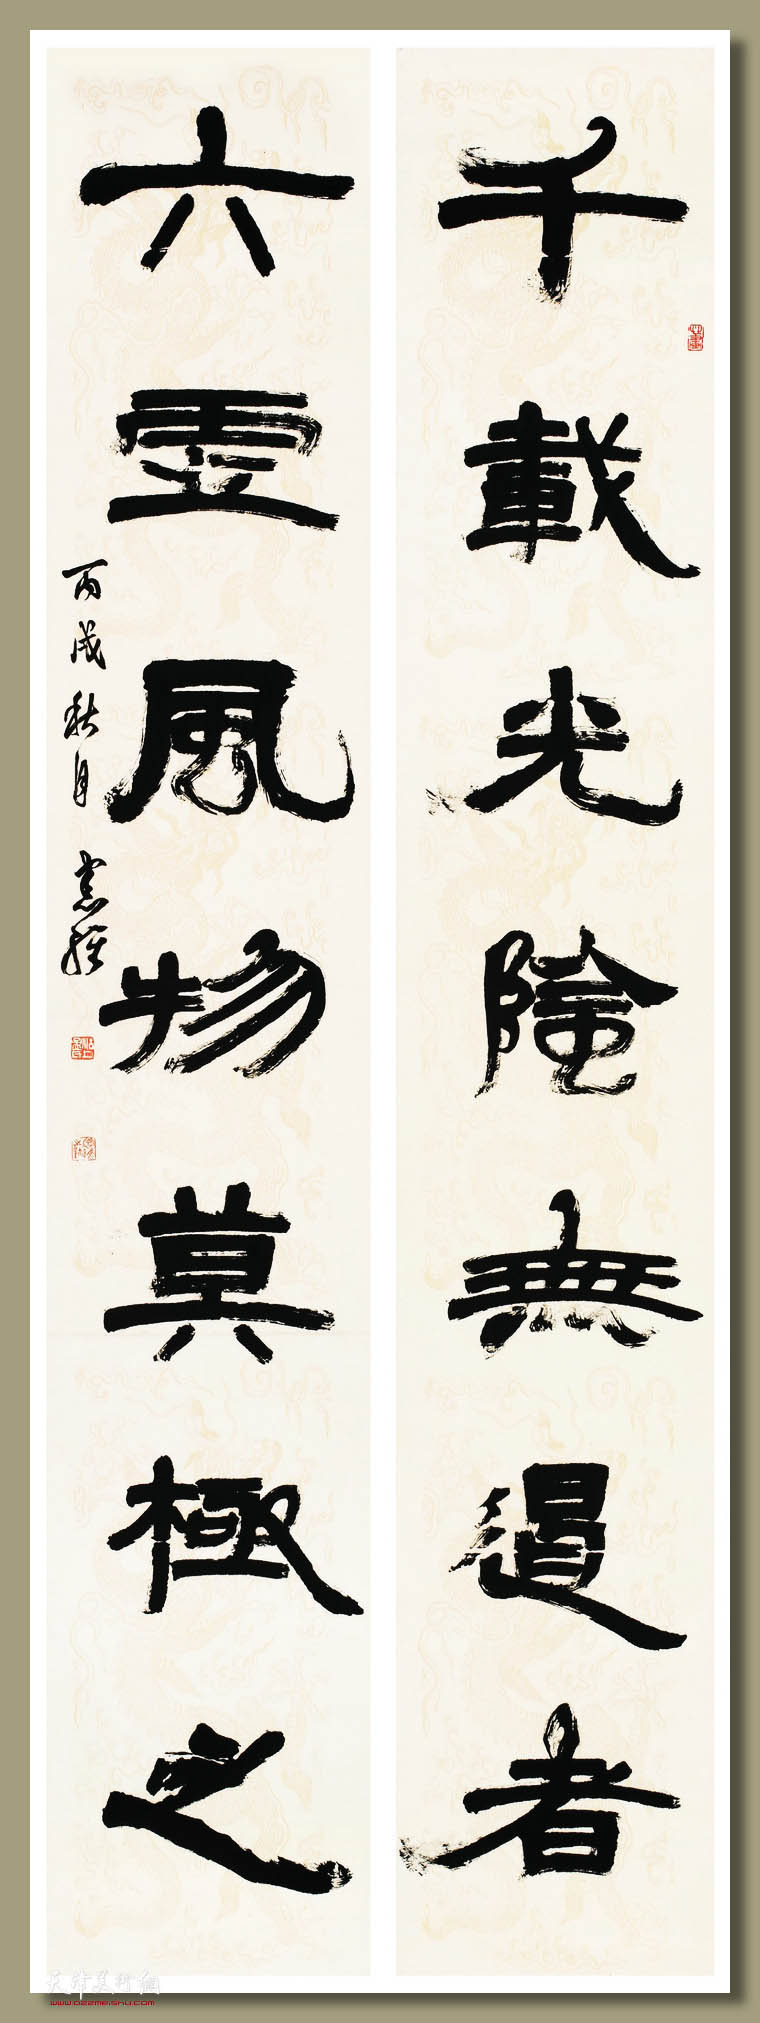 千載光陰無者
六霊風物莫極之
丙戌秋月
天津美術網
www.022meishu.com